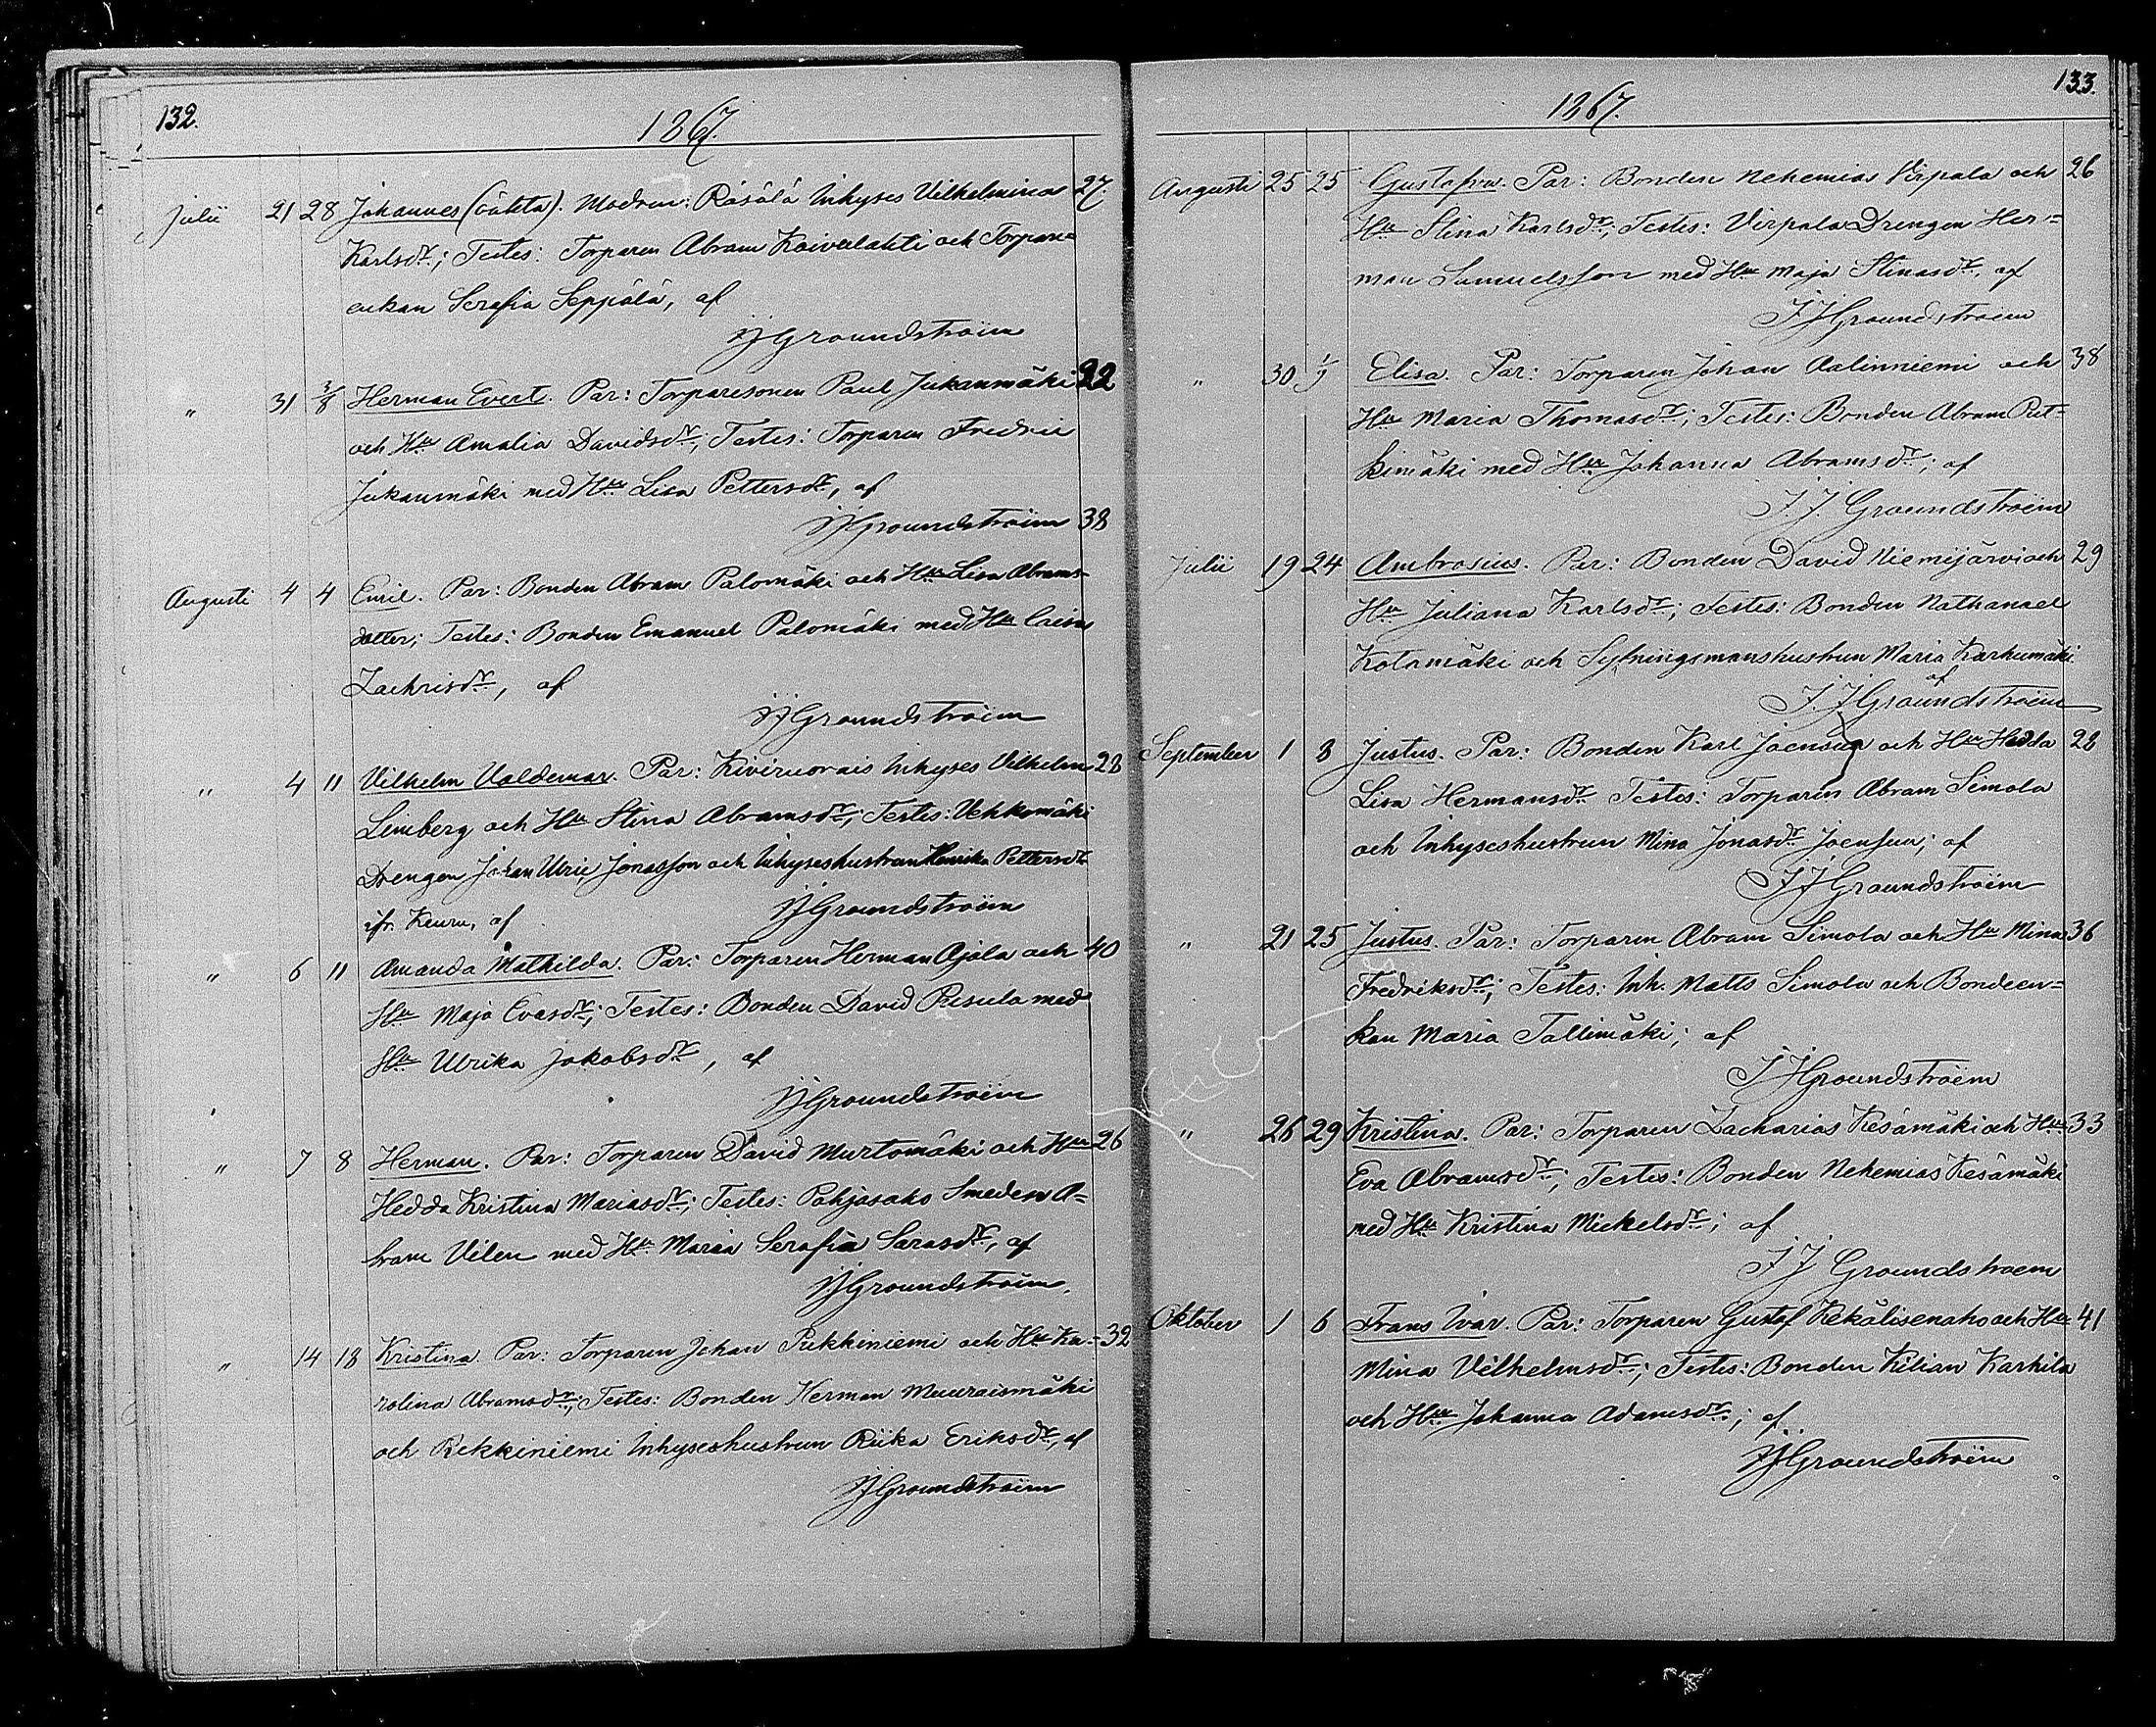 132.
1867.
Julii 21 28 Johannes (oäkta). Modren: Räsälä Inhyses Vilhelmina 27.
Karlsdr; Testes: Torparen Abram Koivulahti och Torpare=
enkan Serafia Seppälä, af
JJGroundstroëm
" 31 3/8 Herman Evert. Par: Torparesonen Paul Jukanmäki 22
och Hu Amalia Davidsdr; Testes: Torparen Fredric
Jukanmäki med Hu Lisa Pettersdr, af
JJGroundstroëm 38
Augusti 4 4 Emil. Par: Bonden Abram Palomäki och Hu Lisa Abrams-
dotter; Testes: Bonden Emanuel Palomäki med Hu Caisa
Zachrisdr, af
JJGroundstroëm
" 4 11 Vilhelm Valdemar. Par: Kiviruorais Inhyses Vilhelm 28
Limberg och Hu Stina Abramsdr; Testes: Vehkomäki
Drengen Johan Ulric Jonasson och Inhyseshustrun Henrika Pettersdr
ifr. Keuru, af JJGroundstroëm
" 6 11 Amanda Mathilda. Par: Torparen Herman Ajala och 40
Hu Maja Evasdr; Testes: Bonden David Risula med
Hu Ulrika Jakobsdr, af
JJGroundstroëm
" 7 8 Herman. Par: Torparen David Murtomäki och Hu 26
Hedda Kristina Mariasdr; Testes: Pohjasaho Smeden A=
bram Vilen med Hu Maria Serafia Sarasdr, af
JJGroundstroëm.
" 14 18 Kristina. Par: Torparen Johan Pukkiniemi och Hu Ka- 32
rolina Abramsdr; Testes: Bonden Herman Muuraismäki
och Pukkiniemi Inhyseshustrun Riika Eriksdr, af
JJGroundstroëm
133.
1867.
Augusti 25 25 Gustafva. Par: Bonden Nehemias Virpala och 26
Hu Stina Karlsdr; Testes: Virpala Drengen Her=
man Samuelsson med Hu Maja Stinasdr, af
JJGroundstroëm
" 30 1/9 Elisa. Par: Torparen Johan Aalinniemi och 38
Hu Maria Thomasdr; Testes: Bonden Abram Put-
kimäki med Hu Johanna Abramsdr; af
J.J. Groundstroëm
Julii 19 24 Ambrosius. Par: Bonden David Niemijärvi och 29
Hu Juliana Karlsdr; Testes: Bonden Nathanael
Kotamäki och Sytningsmanshustrun Maria Karhumäki
af
J.JGroundstroëm
September 1 8 Justus. Par: Bonden Karl Joensuu och Hu Hedda 28
Lisa Hermansdr Testes: Torparen Abram Simola
och Inhyseshustrun Mina Jonasdr Joensuu; af
JJGroundstroëm
" 21 25 Justus. Par: Torparen Abram Simola och Hu Mina 36
Fredriksdr; Testes: Inh. Matts Simola och Bondeen=
kan Maria Tallimäki; af
JJGroundstroëm
" 26 29 Kristina. Par: Torparen Zacharias Kesämäki och Hu 33
Eva Abramsdr; Testes: Bonden Nehemias Kesämäki
med Hu Kristina Mickelsdr; af
JJ Groundstroem
Oktober 1 6 Frans Ivar. Par: Torparen Gustaf Kekälisenaho och Hu 41
Mina Vilhelmsdr; Testes: Bonden Kilian Karhila
och Hu Johanna Adamsdr; af
JJGroundstroëm